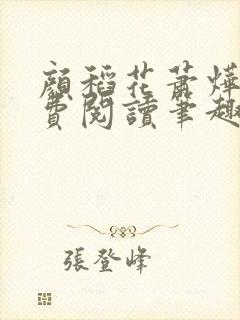 顏稻花蕭燁
費閱讀筆趣
張登峰